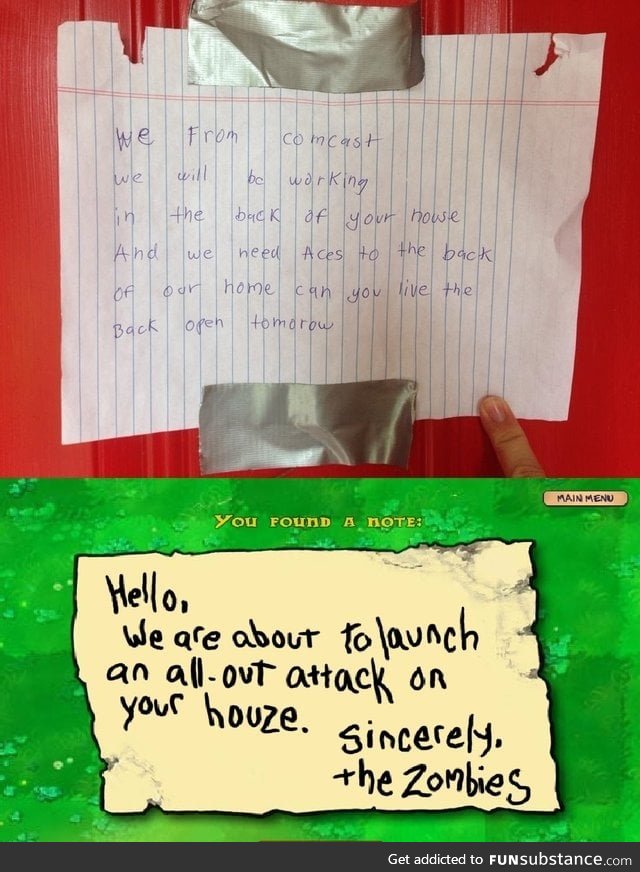 We From comcast
we will be working
in the back of your house
And we need Aces to the back
of our home can you live the
Back open tomorow
MAIN MENU
YOU FOUND A NOTE:
Hello,
We are about to launch
an all-out attack on
your houze.
Sincerely,
the Zombies
Get addicted to FUNsubstance.com